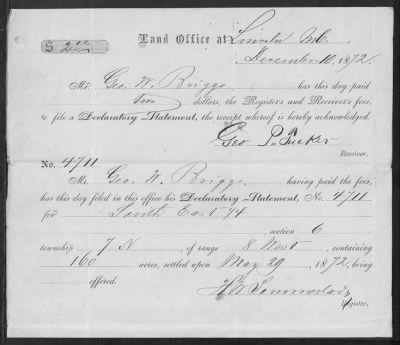 $ 2.00 Land Office at Lincoln Neb.
December 10, 1872.
Mr. Geo. W. Briggs has this day paid
two dollars, the Register's and Receiver's fees,
to file a Declaratory Statement, the receipt whereof is hereby acknowledged.
Geo P. Tucker
Receiver.
No. 4711
Mr. Geo. W. Briggs, having paid the fees,
has this day filed in this office his Declaratory Statement, No. 4711
for South East 1/4
, section 6
township 7 N of range 8 West, containing
160 acres, settled upon May 29, 1872, being
offered.
Register.